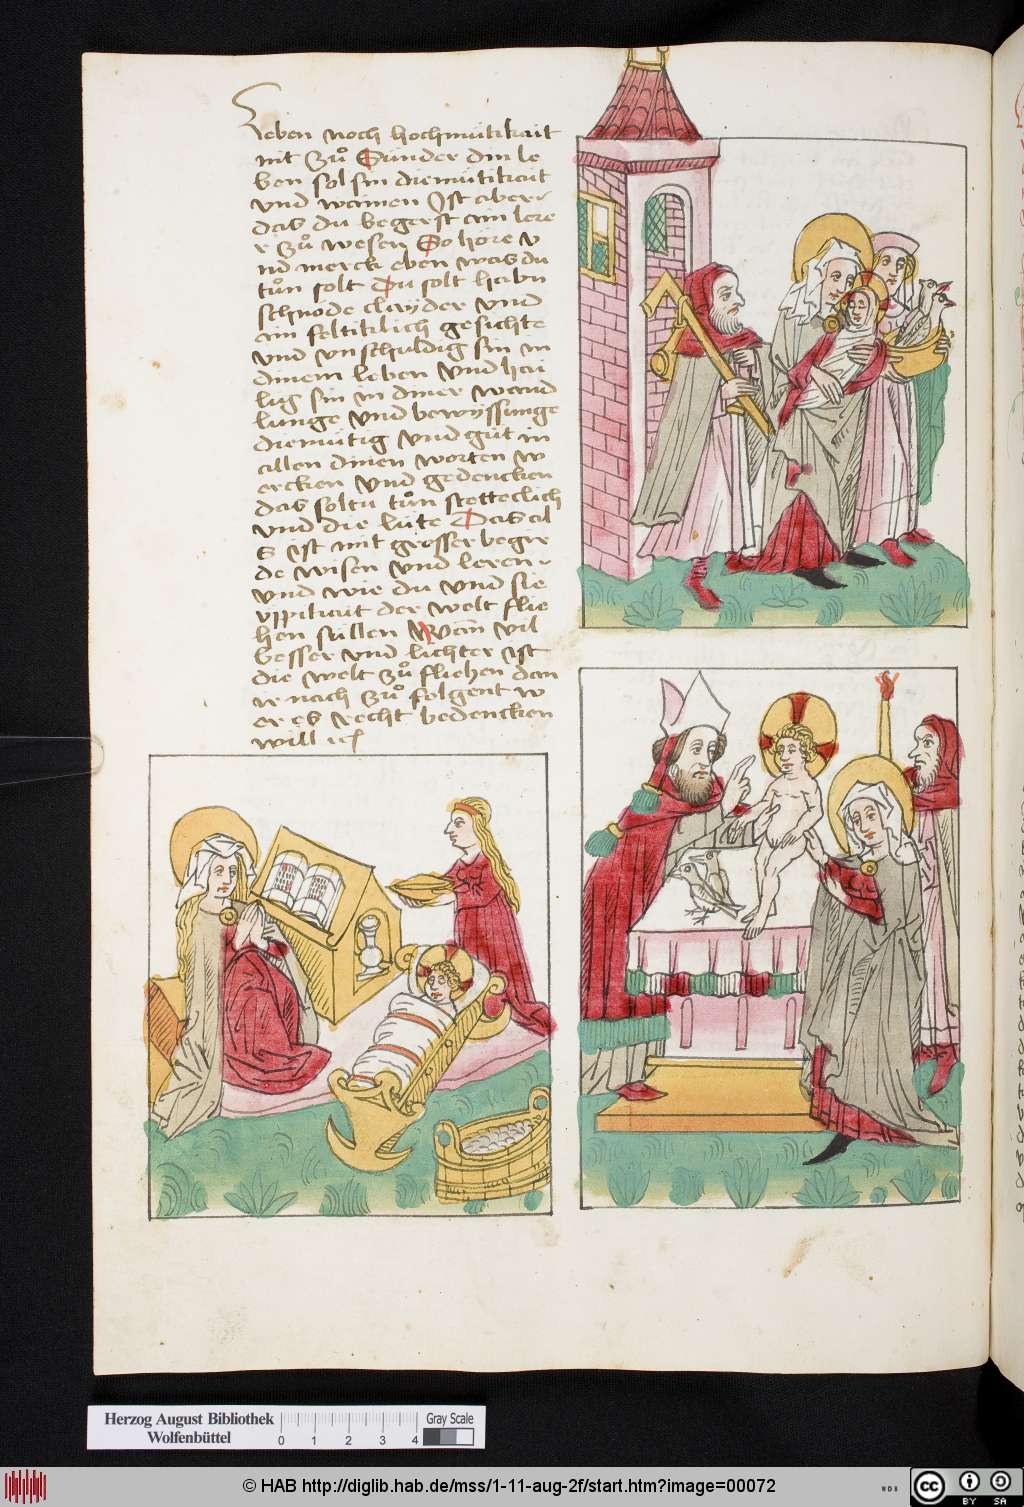 leben noch hochmütikait
nit zů Sünder din le
ben sol sin diemütikait
vnd wainen Ist aber
das du begerst ain lere
r zů wesen So höre v
nd merck eben was du
tůn solt Du solt habn
schnöde clayder vnd
ain seltiklich gesichte
vnd vnschuldig sin in
dinem leben vnd hai
lig sin in diner wand
lunge vnd bewyssunge
diemütig vnd güt in
allen dinen worten w
ercken vnd gedencken
das soltu tůn stetteclich
vnd die lüte Das al
s ist mit grosser begir
de wisen vnd leren
vnd wie du vnd sie
vppikait der welt flie
hen süllen Wann vil
besser vnd lichter ist
die welt zů fliehen dan
ir nach zů folgent w
er es recht bedencken
will
Herzog August Bibliothek
Wolfenbüttel
0 1 2 3 4
Gray Scale
© HAB http://diglib.hab.de/mss/1-11-aug-2f/start.htm?image=00072
WDB
cc
BY SA